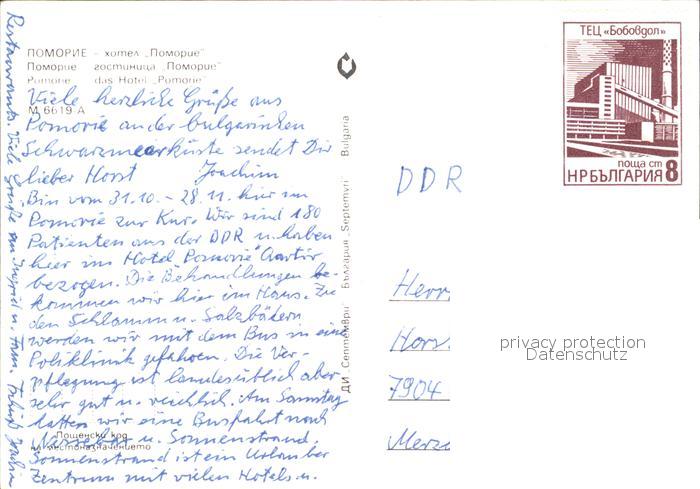 ПОМОРИЕ – хотел „Поморие“
Поморие гостиница „Поморие“
Pomorie das Hotel "Pomorie"
М 6619 А
Viele herzliche Grüße aus
Pomorie an der bulgarischen
Schwarzmeerküste sendet Dir
lieber Horst Joachim
Bin vom 31.10. – 28.11. hier in
Pomorie zur Kur. Wir sind 180
Patienten aus der DDR u. haben
hier im Hotel Pomorie Quartier
bezogen. Die Behandlungen be-
kommen wir hier im Haus. Zu
den Schlamm u. Salzbädern
werden wir mit dem Bus in eine
Poliklinik gefahren. Die Ver-
pflegung ist landesüblich aber
sehr gut u. reichlich. Am Samstag
hatten wir eine Busfahrt nach
Nessebar u. Sonnenstrand.
Sonnenstrand ist ein Urlauber
Zentrum mit vielen Hotels u.
Restaurants. Viele Grüße an Ingrid u. Fam.
Пощенски код
на местоназначението
ДИ „Септември“ България „Septemvri“ Bulgaria
ТЕЦ «Бобовдол»
поща ст 8
НР БЪЛГАРИЯ
DDR
Herrn
Horst
7904
Merz
privacy protection
Datenschutz